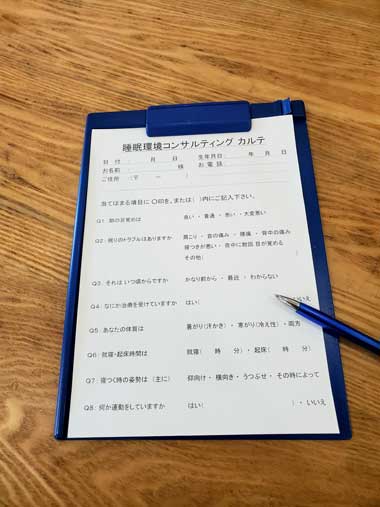 睡眠環境コンサルティング カルテ
日 付 : 月 日 生年月日: 年 月 日
お名前 様 お 電 話 :
ご住所 :(〒 ー )
当てはまる項目に 〇印を、または( )内にご記入下さい。
Q1. 朝の目覚めは 良い ・ 普通 ・ 悪い ・ 大変悪い
Q2: 眠りのトラブルはありますか 肩こり ・ 首の痛み ・ 腰痛 ・ 背中の痛み
寝つきが悪い ・ 夜中に数回 目が覚める
その他( )
Q3. それは いつ頃からですか かなり前から ・ 最近 ・ わからない
Q4: なにか治療を受けていますか はい( いいえ
Q5: あなたの体質は 暑がり(汗かき) ・ 寒がり(冷え性) ・ 両方
Q6: 就寝・起床時間は 就寝( 時 分) ・ 起床( 時 分)
Q7: 寝つく時の姿勢は (主に) 仰向け ・ 横向き ・ うつぶせ ・ その時によって
Q8: 何か運動をしていますか はい( ) ・ いいえ